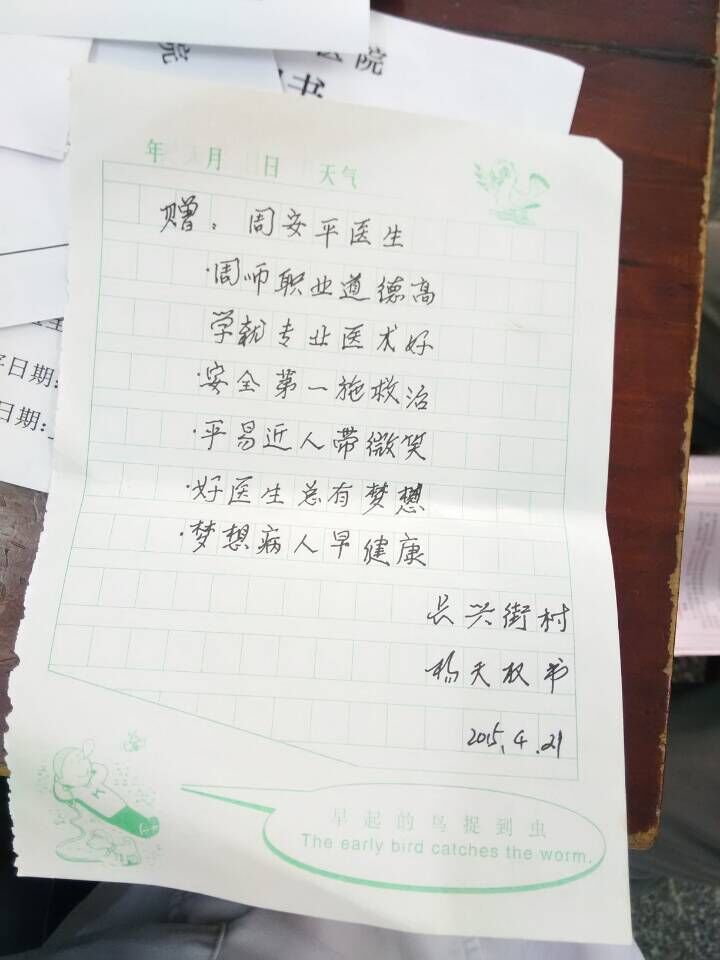 医院
院
书
年 月 日 天气
赠：周安平医生
·周师职业道德高
学就专业医术好
·安全第一施救治
·平易近人带微笑
·好医生总有梦想
·梦想病人早健康
长兴街村
杨天权书
2015.4.21
日期:
日期:
早起的鸟捉到虫
The early bird catches the worm.